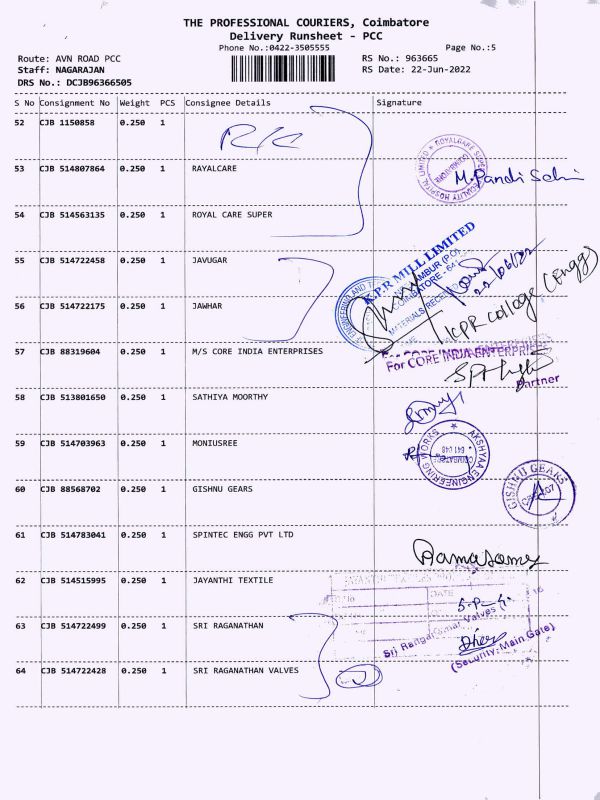 THE PROFESSIONAL COURIERS, Coimbatore
Delivery Runsheet - PCC
Phone No.:0422-3505555
Page No.:5
Route: AVN ROAD PCC
RS No.: 963665
Staff: NAGARAJAN
RS Date: 22-Jun-2022
DRS No.: DCJB96366505
S No Consignment No Weight PCS Consignee Details Signature
52 CJB 1150858 0.250 1
R/C
53 CJB 514807864 0.250 1 RAYALCARE
M. Pandi Selvi
54 CJB 514563135 0.250 1 ROYAL CARE SUPER
K.P.R MILL LIMITED
55 CJB 514722458 0.250 1 JAVUGAR
22/06/22
MATERIALS RECEIVED
56 CJB 514722175 0.250 1 JAWHAR
KPR College (Engg)
57 CJB 88319604 0.250 1 M/S CORE INDIA ENTERPRISES
For CORE INDIA ENTERPRISES
Partner
58 CJB 513801650 0.250 1 SATHIYA MOORTHY
59 CJB 514703963 0.250 1 MONIUSREE
AKSHYAA ENGINEERING WORKS
COIMBATORE
641 048
60 CJB 88568702 0.250 1 GISHNU GEARS
GISHNU GEARS
61 CJB 514783041 0.250 1 SPINTEC ENGG PVT LTD
Ramasamy
62 CJB 514515995 0.250 1 JAYANTHI TEXTILE
DATE
63 CJB 514722499 0.250 1 SRI RAGANATHAN
Sri Ranganathar Valves
(Security: Main Gate)
64 CJB 514722428 0.250 1 SRI RAGANATHAN VALVES